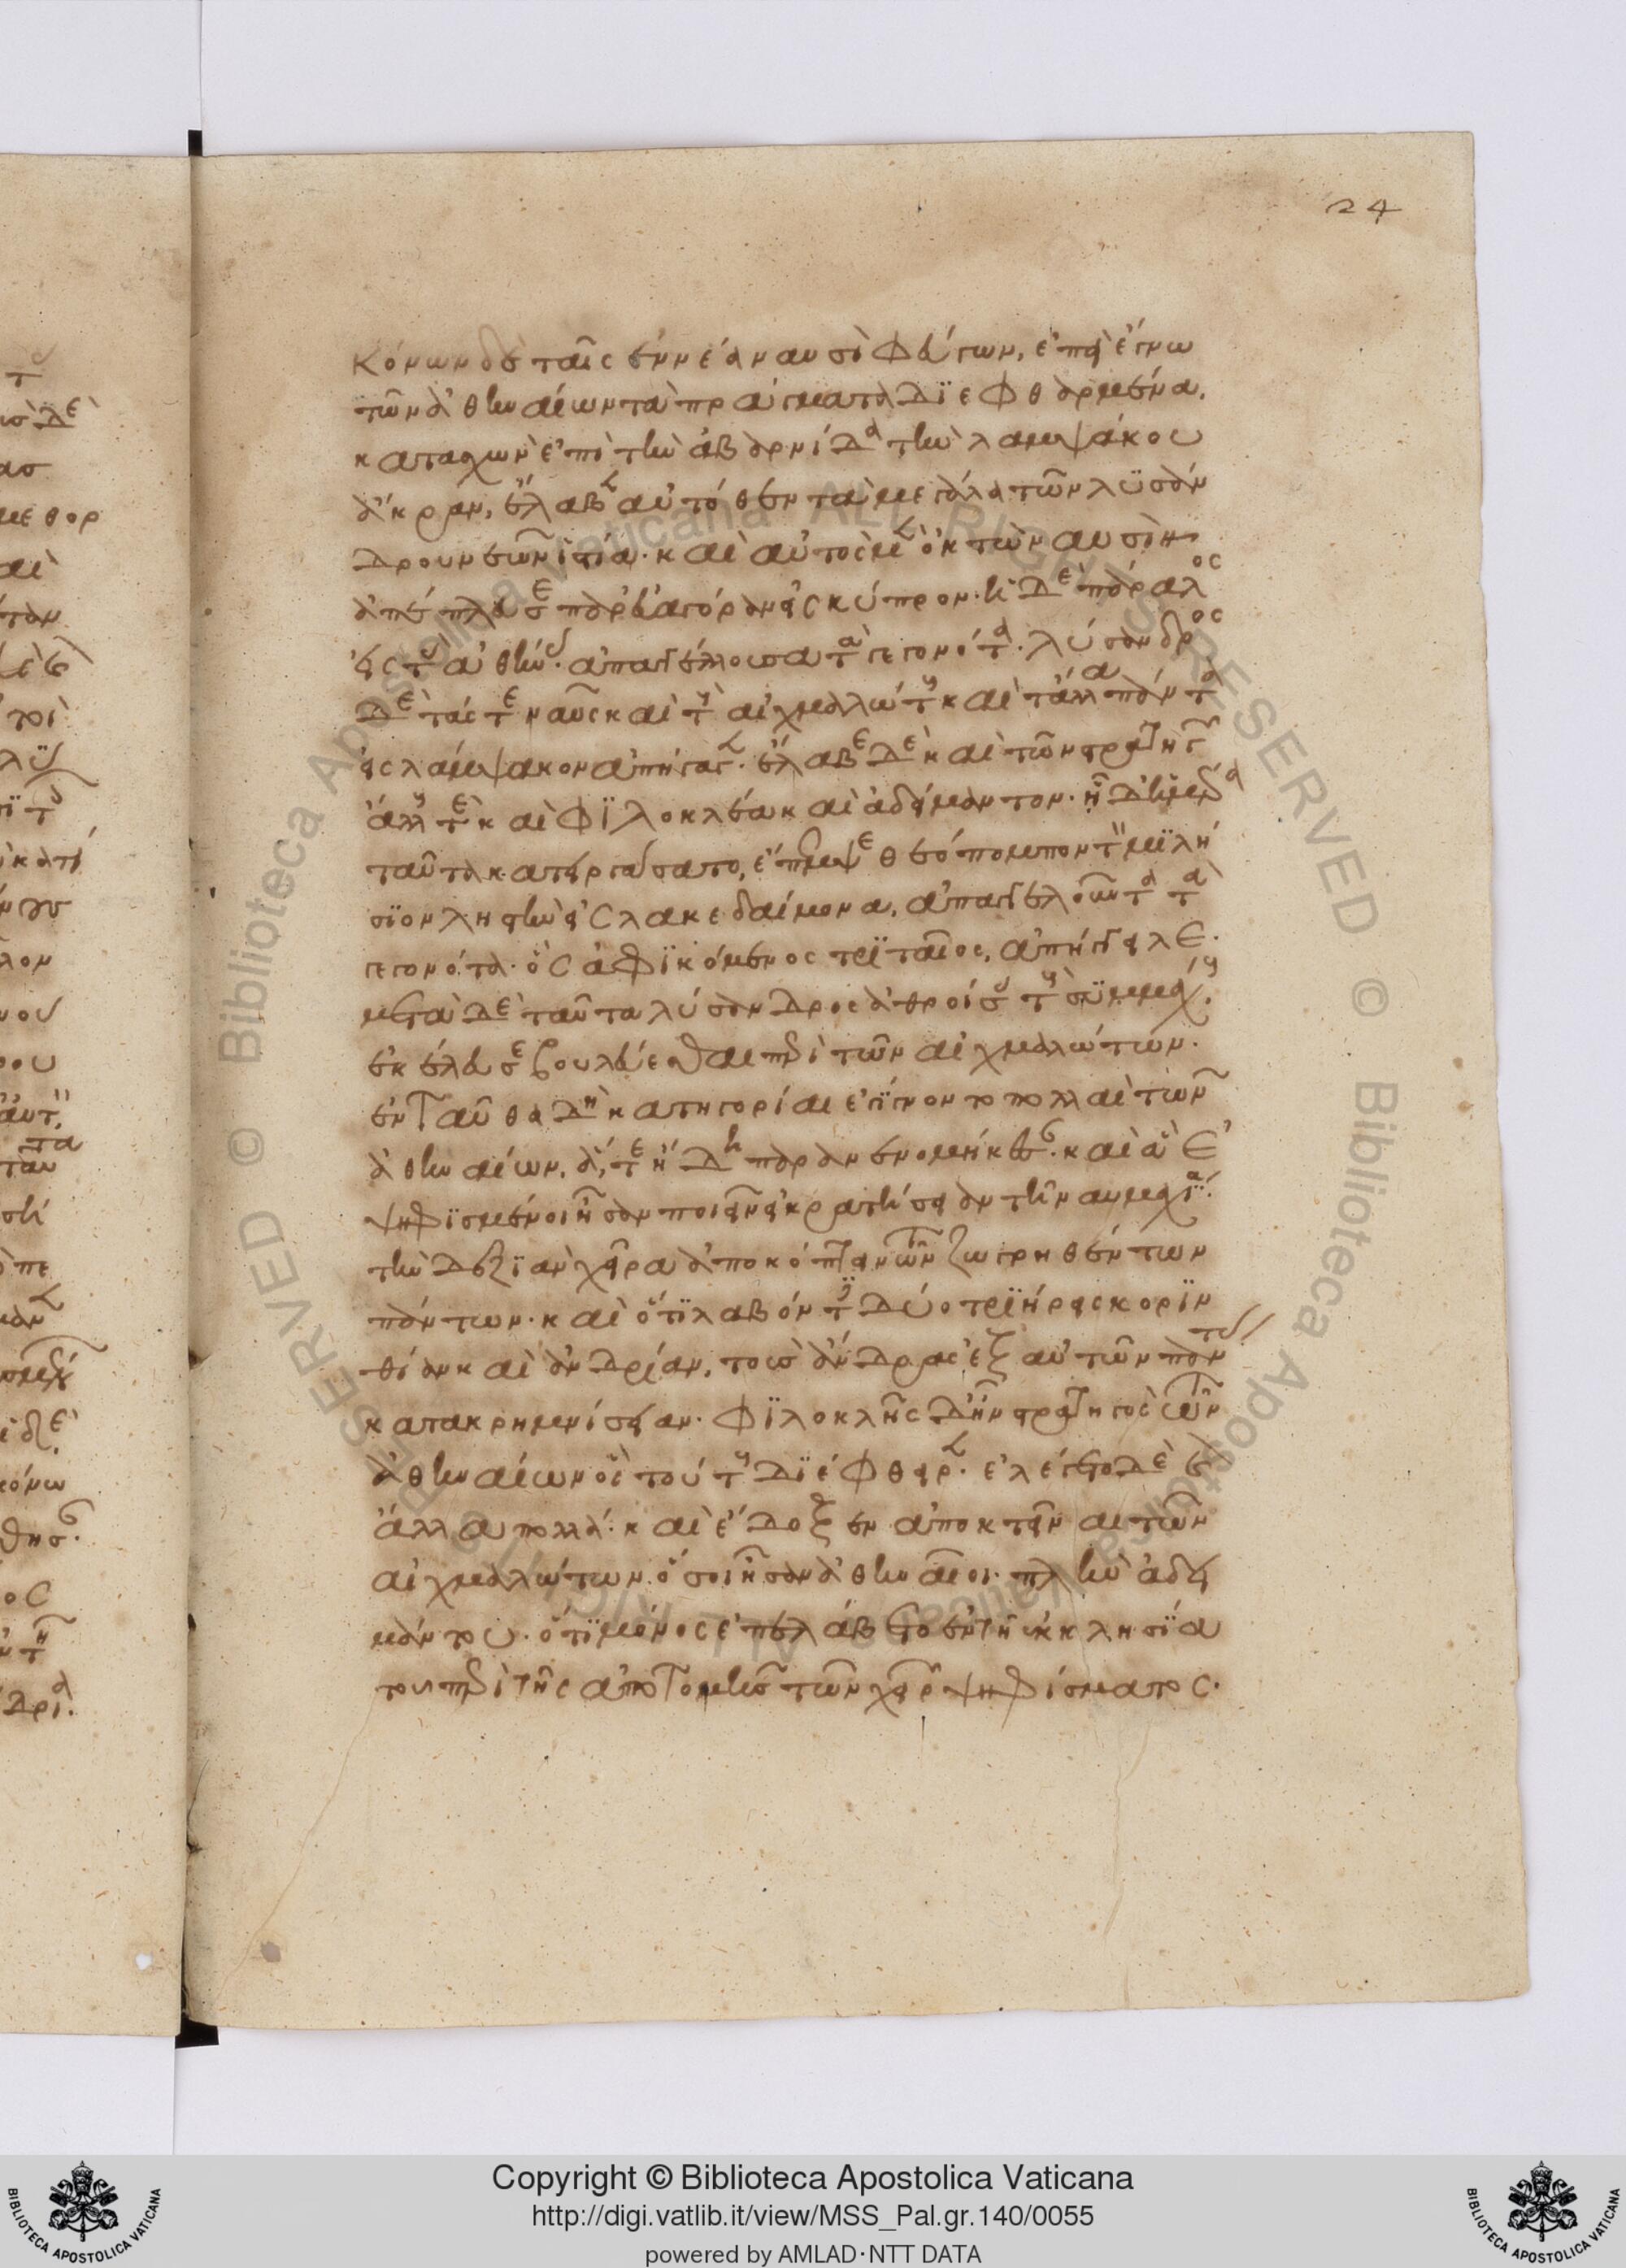 24
Κόνων δὲ ταῖς ἐννέα ναυσὶ φεύγων, ἐπεὶ ἔγνω
τῶν ἀθηναίων τὰ πράγματα διεφθαρμένα,
κατασχὼν ἐπὶ τὴν ἀβαρνίδα τὴν λαμψάκου
ἄκραν, ἔλαβεν αὐτόθεν τὰ μεγάλα τῶν λυσάν
δρου νεῶν ἱστία. καὶ αὐτὸς μὲν ὀκτὼ ναυσὶν
ἀπέπλευσε παρ' εὐαγόραν εἰς κύπρον. ἡ δὲ πάραλος
εἰς τὰς ἀθήνας. ἀπαγγέλλουσα τὰ γεγονότα. λύσανδρος
δὲ τάς τε ναῦς καὶ τοὺς αἰχμαλώτους καὶ τἄλλα πάντα
εἰς λάμψακον ἀπήγαγεν. ἔλαβε δὲ καὶ τῶν στρατηγῶν
ἄλλους τε καὶ φιλοκλέα καὶ ἀδείμαντον. ἧ δ' ἡμέρα
ταῦτα κατειργάσατο, ἔπεμψε θεόπομπον τὸν μιλή
σιον ληστὴν εἰς λακεδαίμονα, ἀπαγγελοῦντα τὰ
γεγονότα. ὃς ἀφικόμενος τριταῖος, ἀπήγγειλε.
μετὰ δὲ ταῦτα λύσανδρος ἀθροίσας τοὺς συμμάχους
ἐκέλευσε βουλεύεσθαι περὶ τῶν αἰχμαλώτων.
ἐνταῦθα δὴ κατηγορίαι ἐγίγνοντο πολλαὶ τῶν
ἀθηναίων, ἅ τε ἤδη παρανενομήκεσαν. καὶ ἃ ἐ
ψηφισμένοι ἦσαν ποιεῖν εἰ κρατήσειαν τῇ ναυμαχίᾳ.
τὴν δεξιὰν χεῖρα ἀποκόπτειν τῶν ζωγρηθέντων
πάντων. καὶ ὅτι λαβόντες δύο τριήρεις κοριν
θίαν καὶ ἀνδρίαν, τοὺς ἄνδρας ἐξ αὐτῶν πάντας
κατακρημνίσειαν. φιλοκλῆς δ' ἦν στρατηγὸς τῶν
ἀθηναίων ὃς τούτους διέφθειρεν. ἐλέγετο δὲ καὶ
ἄλλα πολλά. καὶ ἔδοξεν ἀποκτεῖναι τῶν
αἰχμαλώτων ὅσοι ἦσαν ἀθηναῖοι. πλὴν ἀδει
μάντου. ὅτι μόνος ἐπελάβετο ἐν τῇ ἐκκλησίᾳ
τοῦ περὶ τῆς ἀποτομῆς τῶν χειρῶν ψηφίσματος.
Copyright © Biblioteca Apostolica Vaticana
http://digi.vatlib.it/view/MSS_Pal.gr.140/0055
powered by AMLAD·NTT DATA